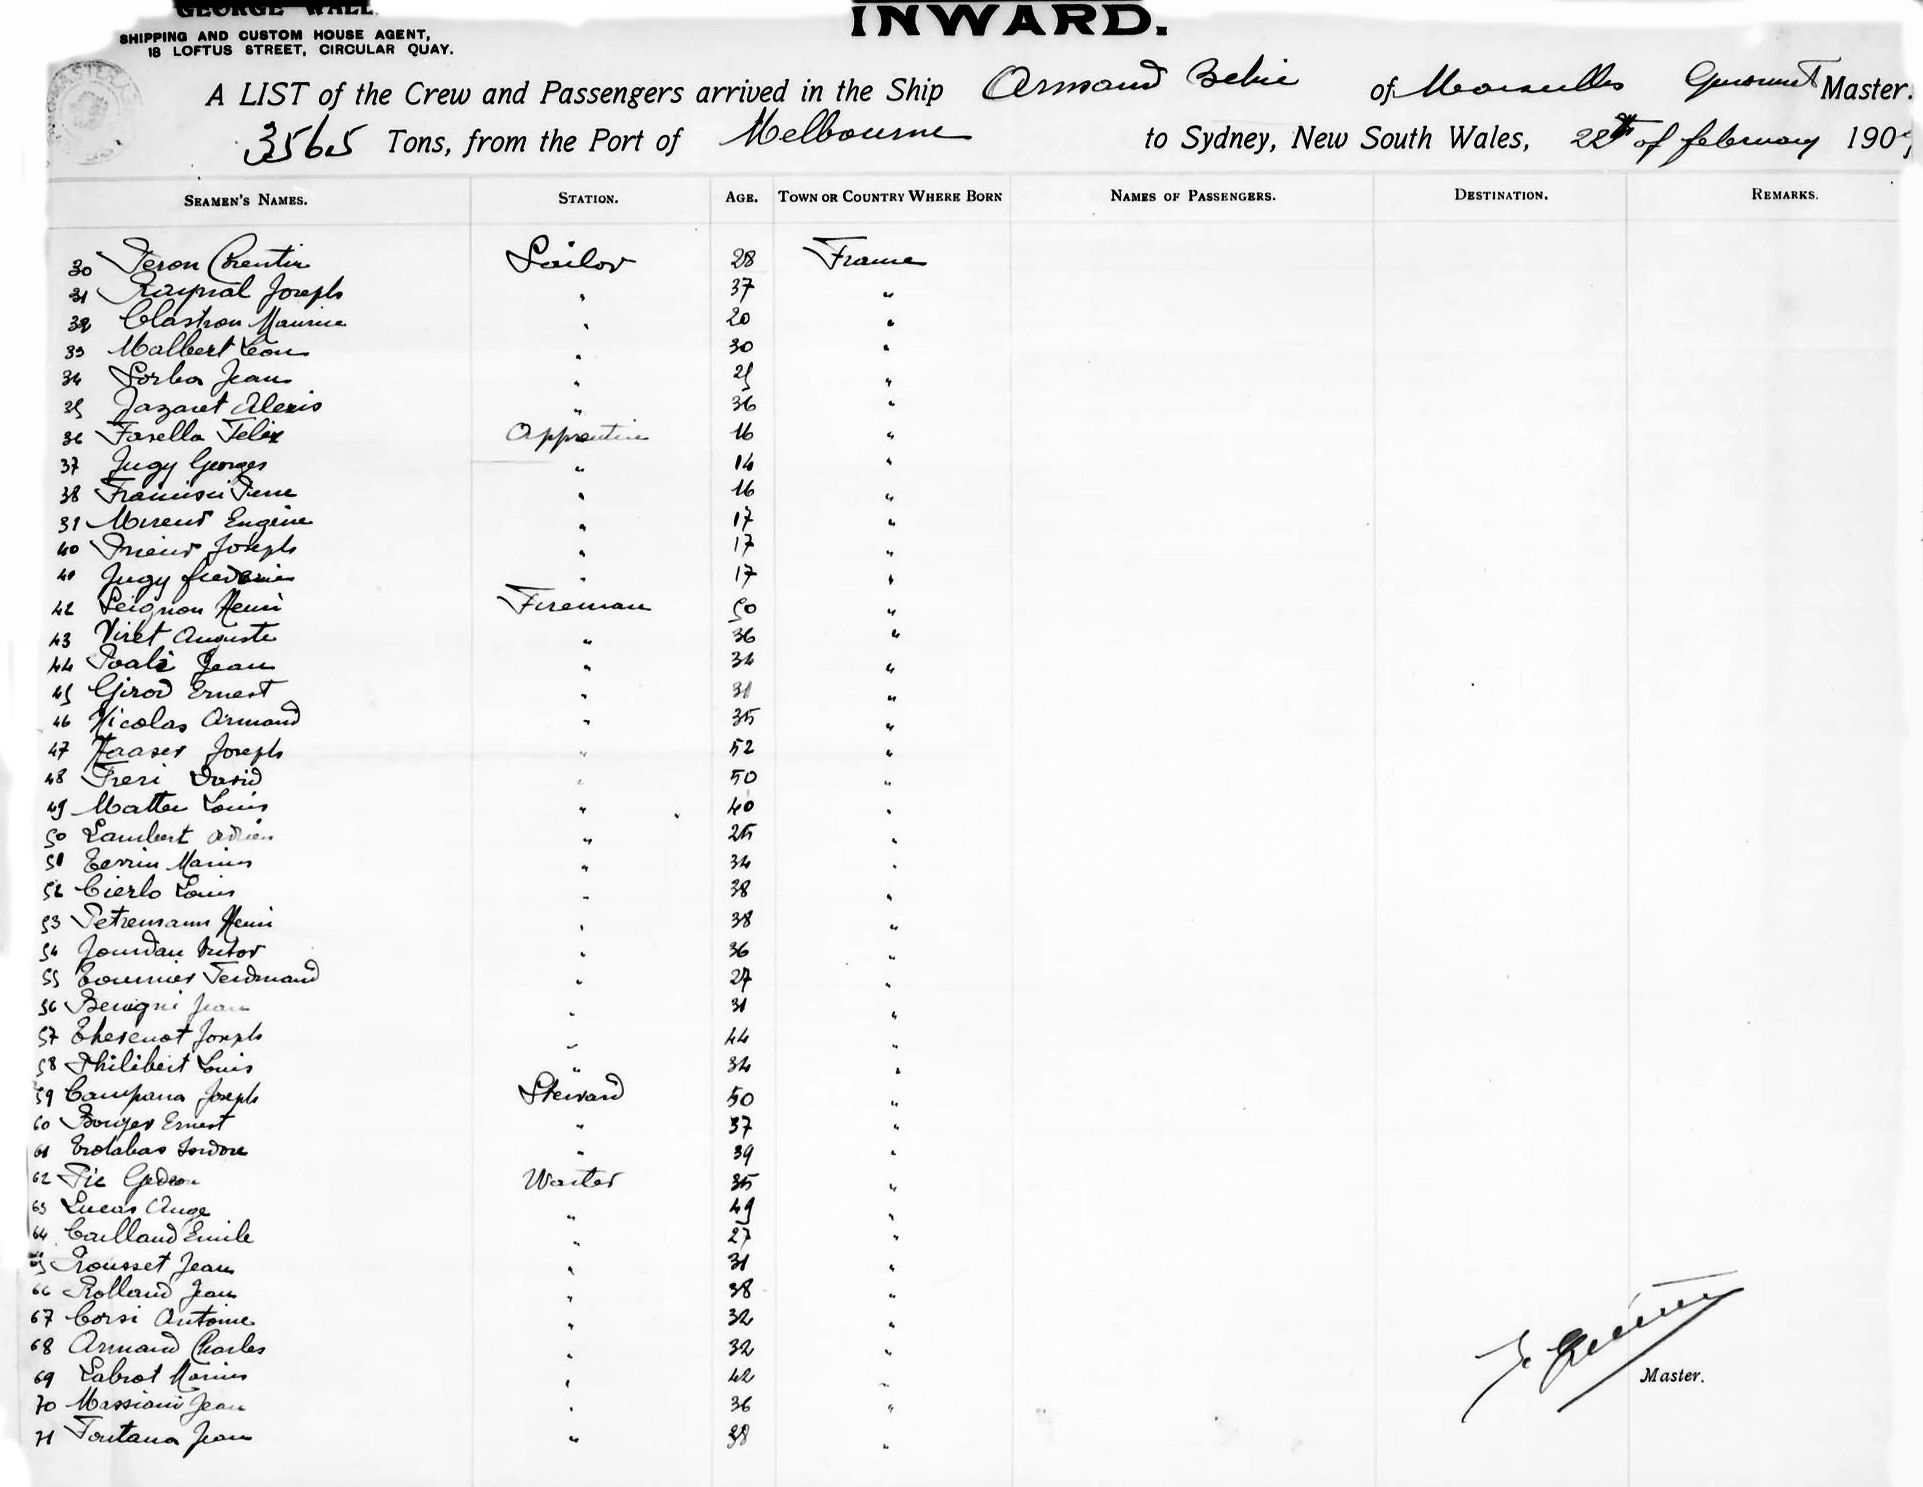 GEORGE WALL
SHIPPING AND CUSTOM HOUSE AGENT,
18 LOFTUS STREET, CIRCULAR QUAY.
INWARD.
A LIST of the Crew and Passengers arrived in the Ship Armand Behic of Marseilles Master.
3565 Tons, from the Port of Melbourne to Sydney, New South Wales, 22th of february 190
SEAMEN'S NAMES. STATION. AGE. TOWN OR COUNTRY WHERE BORN NAMES OF PASSENGERS. DESTINATION. REMARKS.
30 Feron Corentin Sailor 28 France
31 Raynal Joseph " 37 "
32 Clastron Maurice " 20 "
33 Malbert Leon " 30 "
34 Sorba Jean " 25 "
35 Jazaret Alexis " 36 "
36 Farella Felix Apprentice 16 "
37 Jugy Georges " 14 "
38 Franceisci Pierre " 16 "
39 Mireur Eugène " 17 "
40 Prieur Joseph " 17 "
41 Jugy frederic " 17 "
42 Seignon Henri Fireman 50 "
43 Viret Auguste " 36 "
44 Poali Jean " 34 "
45 Girod Ernest " 31 "
46 Nicolas Armand " 35 "
47 Haaser Joseph " 52 "
48 Freri David " 50 "
49 Matteu Louis " 40 "
50 Lambert Adrien " 25 "
51 Terrin Marius " 34 "
52 Cierlo Louis " 38 "
53 Petremann Henri " 38 "
54 Jourdan Victor " 36 "
55 Tournier Ferdinand " 27 "
56 Benigni Jean " 31 "
57 Thevenot Joseph " 44 "
58 Philibert Louis " 34 "
59 Campana Joseph Steward 50 "
60 Bouger Ernest " 37 "
61 Trolabas Isidore " 39 "
62 Pic Gedeon Waiter 35 "
63 Lucas Ange " 49 "
64 Cailland Emile " 27 "
65 Rousset Jean " 31 "
66 Rolland Jean " 38 "
67 Corsi Antoine " 32 "
68 Armand Charles " 32 "
69 Labrot Marius " 42 "
70 Massiani Jean " 36 "
71 Fontana Jean " 38 "
Master.